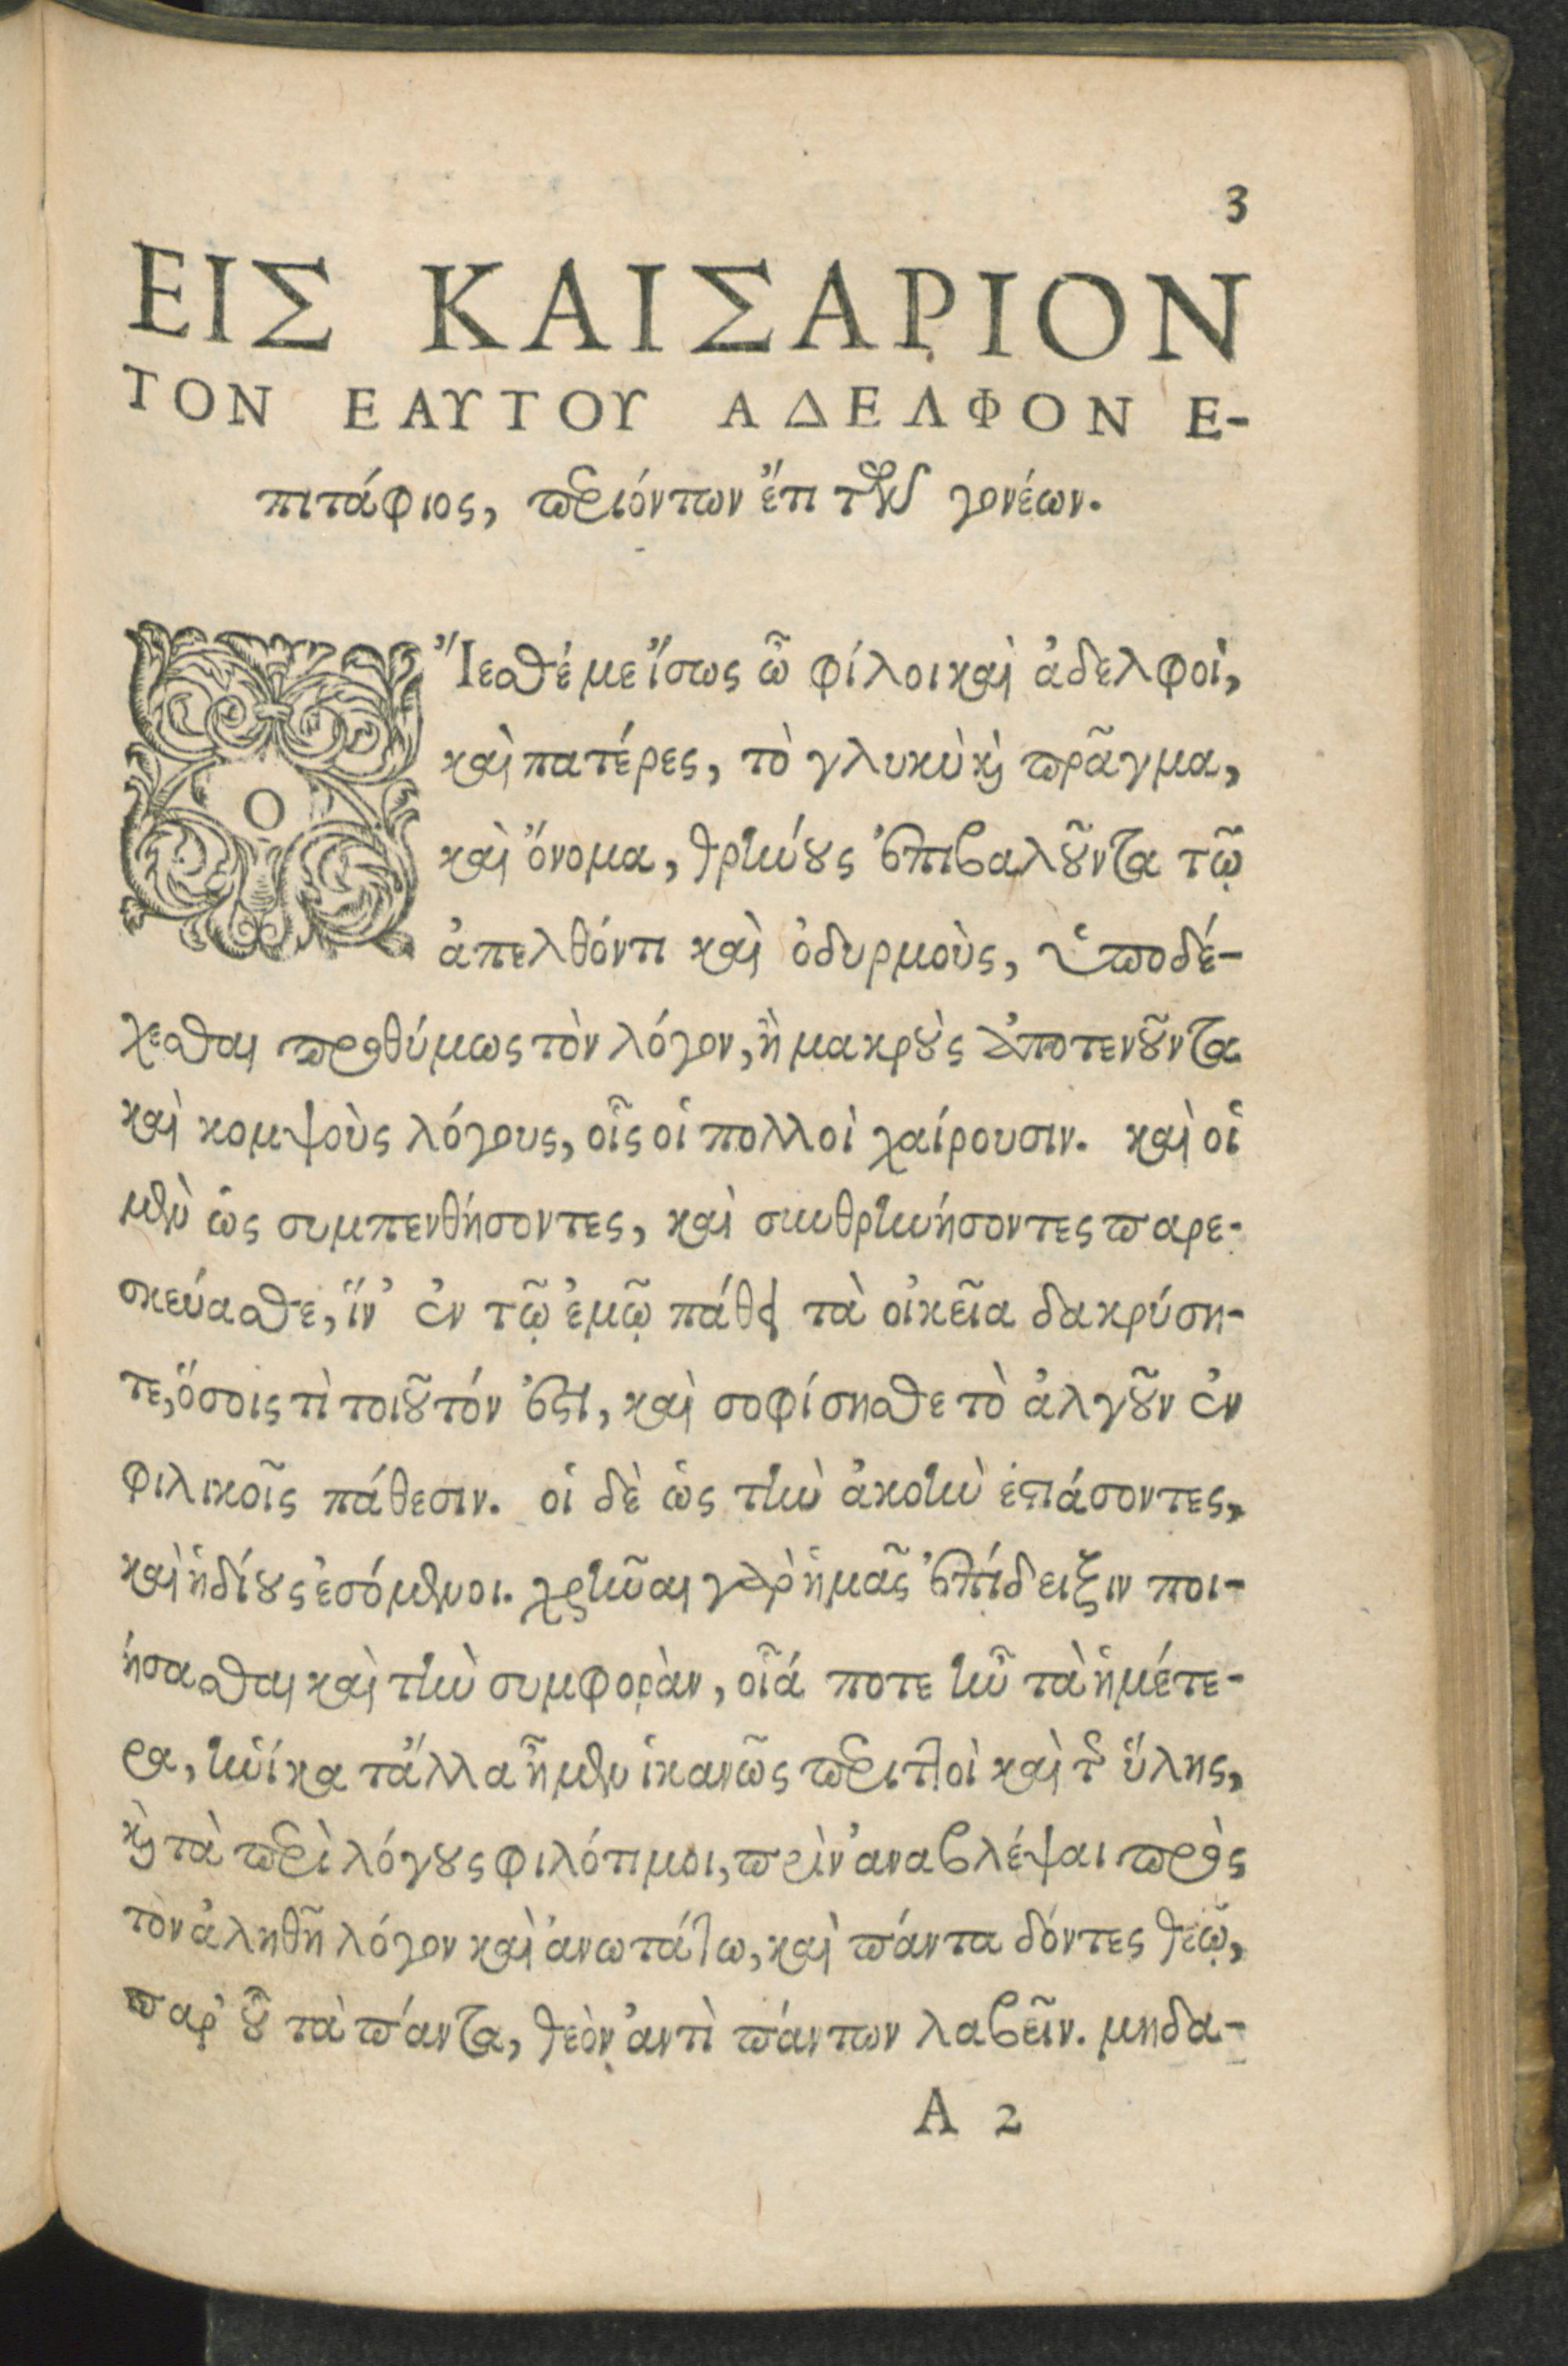 3
ΕΙΣ ΚΑΙΣΑΡΙΟΝ
ΤΟΝ ΕΑΥΤΟΥ ΑΔΕΛΦΟΝ Ε-
πιτάφιος, περιόντων ἔτι τῶν γονέων.
Ὄἴεσθέ με ἴσως ὦ φίλοι καὶ ἀδελφοὶ,
καὶ πατέρες, τὸ γλυκὺ καὶ πρᾶγμα,
καὶ ὄνομα, θρήνους ἐπιβαλοῦντα τῷ
ἀπελθόντι καὶ ὀδυρμοὺς, ὑποδέ-
χεσθαι προθύμως τὸν λόγον, ἢ μακροὺς ἀποτενοῦντα
καὶ κομψοὺς λόγους, οἷς οἱ πολλοὶ χαίρουσιν. καὶ οἱ
μὲν ὡς συμπενθήσοντες, καὶ συνθρηνήσοντες παρε-
σκεύασθε, ἵν' ἐν τῷ ἐμῷ πάθει τὰ οἰκεῖα δακρύση-
τε, ὅσοις τὶ τοιοῦτόν ἐστι, καὶ σοφίσησθε τὸ ἀλγοῦν ἐν
φιλικοῖς πάθεσιν. οἱ δὲ ὡς τὴν ἀκοὴν ἑστιάσοντες,
καὶ ἡδίους ἐσόμενοι. χρῆναι γὰρ ἡμᾶς ἐπίδειξιν ποι-
ήσασθαι καὶ τὴν συμφορὰν, οἷά ποτε ἦν τὰ ἡμέτε-
ρα, ἡνίκα τἄλλα ἦμεν ἱκανῶς περιττοὶ καὶ τῆς ὕλης,
καὶ τὰ περὶ λόγους φιλότιμοι, πρὶν ἀναβλέψαι πρὸς
τὸν ἀληθῆ λόγον καὶ ἀνωτάτω, καὶ πάντα δόντες θεῷ,
παρ' οὗ τὰ πάντα, θεὸν ἀντὶ πάντων λαβεῖν. μηδα-
A 2